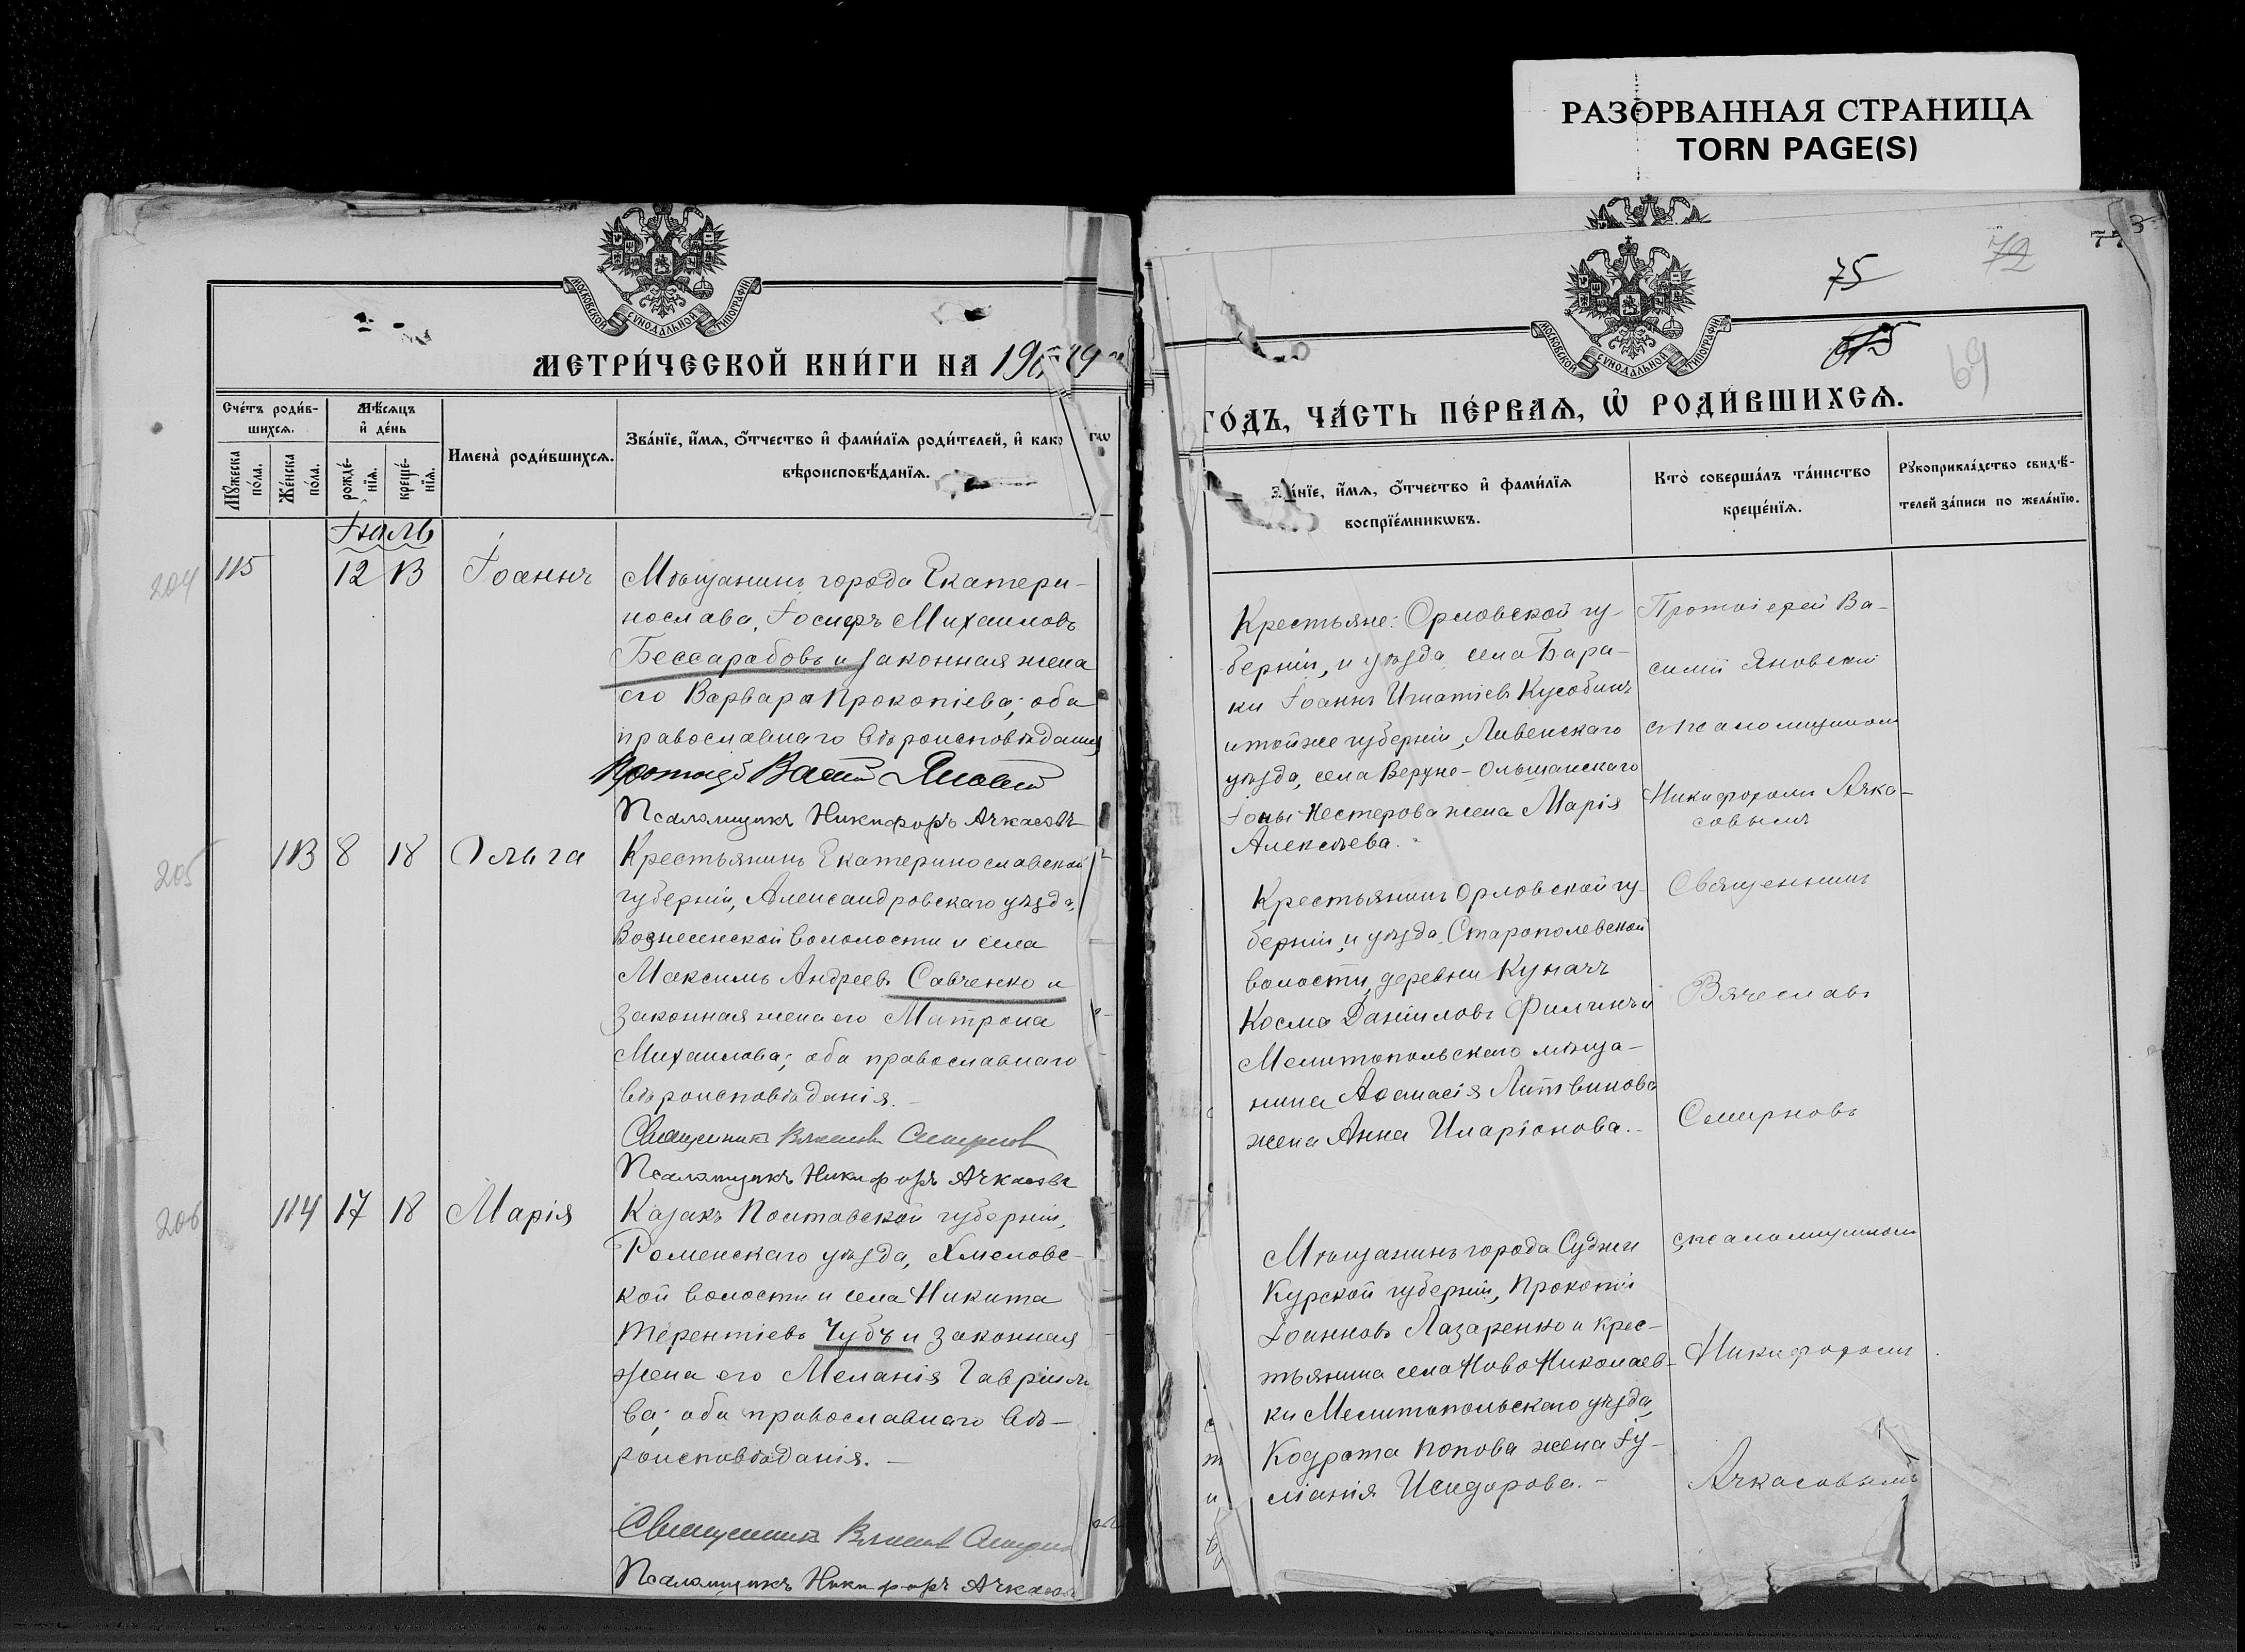 РАЗОРВАННАЯ СТРАНИЦА
TORN PAGE(S)
МОСКОВСКОЙ СѴНОДАЛЬНОЙ ТИПОГРАФІИ
МЕТРИ́ЧЕСКОЙ КНИ́ГИ НА 19
Сче́тъ роди́в-
шихсѧ.
Мѣ́сѧцъ
и҆ де́нь
Мꙋ́жеска
по́ла.
Же́нска
по́ла.
рожде́-
нїѧ.
креще́-
нїѧ.
Имена̀ роди́вшихсѧ.
Зва́нїе, и҆́мѧ, ѻ҆́тчество и҆ фами́лїѧ роди́телей, и҆ како
гѡ
вѣроисповѣ́данїѧ.
Іюль
204 115 12 13 Іоаннъ
Мѣщанинъ города Екатери-
нослава, Іосифъ Михаиловъ
Бессарабовъ и законная жена
его Варвара Прокопіева; оба
православнаго вѣроисповѣданія
Протоіерей Василій Яновскій
Псаломщикъ Никифоръ Ачкасовъ
205 113 8 18 Ольга
Крестьянинъ Екатеринославской
губерніи, Александровскаго уѣзда,
Вознесенской вололости и села
Максимъ Андреевъ Савченко и
законная жена его Матрона
Михаилова; оба православнаго
вѣроисповѣданія.-
Священникъ Вячеславъ Смирновъ
Псаломщикъ Никифоръ Ачкасовъ
206 114 17 18 Марія
Казакъ Полтавской губерніи,
Роменскаго уѣзда, Хмеловс-
кой волости и села Никита
Терентіевъ Чубъ и законная
жена его Меланія Гавріило
ва; оба православнаго вѣ-
роисповѣданія.-
Священникъ Вячеславъ Смирно
Псаломщикъ Никифоръ Ачкасовъ
75
72
69
МОСКОВСКОЙ СѴНОДАЛЬНОЙ ТИПОГРАФІИ
ГО́ДЪ, ЧА́СТЬ ПЕ́РВАѦ, Ѡ҆ РОДИ́ВШИХСѦ.
Зва́нїе, и҆́мѧ, ѻ҆́тчество и҆ фами́лїѧ
воспрїе́мникѡвъ.
Кто̀ соверша́лъ та́инство
креще́нїѧ.
Рꙋкоприкла́дство свидѣ́-
телей за́писи по жела́нїю.
Крестьяне: Орловской гу-
берніи, и уѣзда села Бара-
ки Іоаннъ Игнатіевъ Кусобинъ
и тойже губерніи, Ливенскаго
уѣзда, села Верхне-Ольшанскаго
Іоны Нестерова жена Марія
Алексѣева.
Протоіерей Ва-
силій Яновскій
съ псаломщикомъ
Никифоромъ Ачка-
совымъ
Крестьянинъ Орловской гу-
берніи, и уѣзда, Старопольевской
волости, деревни Куначъ
Косма Даніиловъ Филинъ и
Мелитопольскаго мѣща-
нина Аѳанасія Литвинова
жена Анна Иларіонова.-
Священникъ
Вячеславъ
Смирновъ
Мѣщанинъ города Суджи
Курской губерніи, Прокопій
Іоанновъ Лазаренко и крес-
тьянина села Ново Николаев-
ки Мелитопольскаго уѣзда,
Кодрата Попова жена Іу-
ліанія Исидорова.-
съ псаломщикомъ
Никифоромъ
Ачкасовымъ